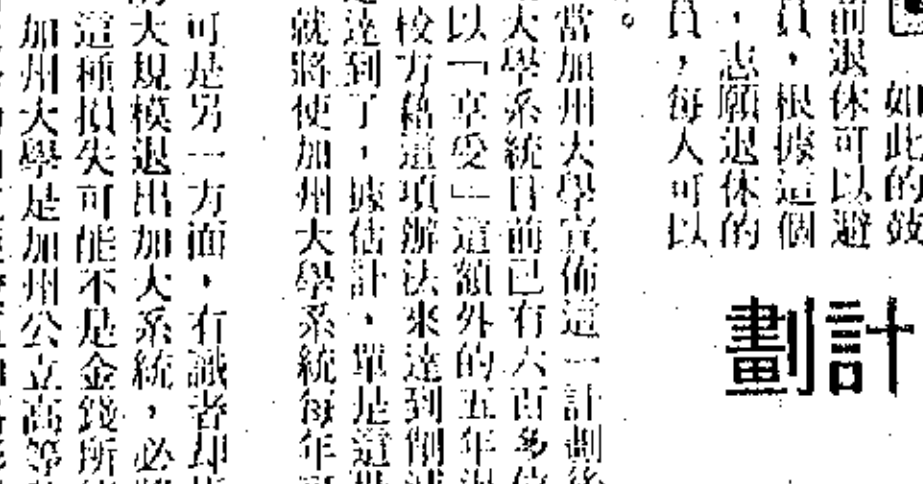 如此的鼓
前退休可以避
員，根據這個
，志願退休的
員，每人可以
。
計劃
當加州大學宣佈這一計劃後
大學系統目前已有六百多位
以「享受」這額外的五年退
校方藉這項辦法來達到削減
達到了，據估計，單是這批
就將使加州大學系統每年可
可是另一方面，有識者却指
的大規模退出加大系統，必將
這種損失可能不是金錢所能
加州大學是加州公立高等